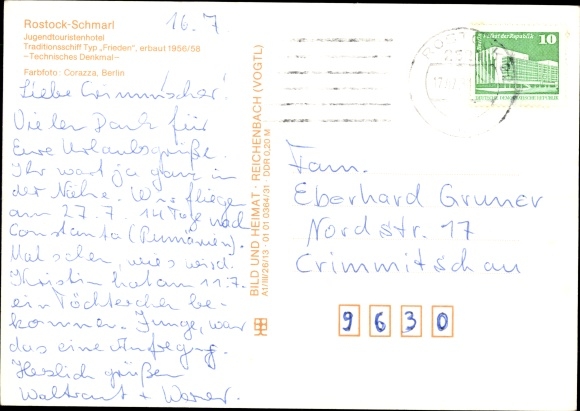 16.7
Rostock-Schmarl
Jugendtouristenhotel
Traditionsschiff Typ „Frieden", erbaut 1956/58
–Technisches Denkmal–
Farbfoto: Corazza, Berlin
Liebe Crimmischer!
Vielen Dank für
Eure Urlaubsgrüße.
Ihr wart ja ganz in
der Nähe. Wir fliegen
am 27.7. 14 Tage nach
Constanta (Rumänien).
Mal sehen, wies wird.
Kristin hat am 11.7.
ein Töchterchen be-
kommen. Junge, war
das eine Aufregung.
Herzlich grüßen
Waltraut + Werner.
BILD UND HEIMAT · REICHENBACH (VOGTL)
A1/III/26/13 01 01 0364/31 DDR 0,20 M
Palast der Republik
10
DEUTSCHE DEMOKRATISCHE REPUBLIK
Fam.
Eberhard Gruner
Nordstr. 17
Crimmitschau
9630